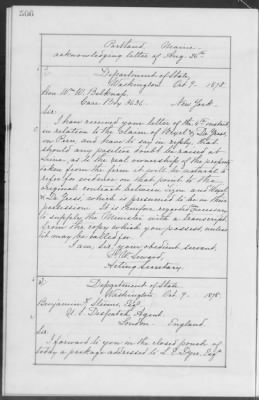 566
Portland, Maine.
acknowledging letter of Aug. 26th
Department of State,
Washington Oct. 9. 1878.
Hon. Wm W. Belknap,
Care Box 3636. New York.
Sir:
I have received your letter of the 5th instant,
in relation to the claim of
on Peru, and have to say in reply, that
should any question be raised at
Lima, as to the real ownership of the property
taken from the firm it will be natural to
refer for evidence on that point to the
original contract between and
which is presumed to be in their
possession. It is therefore regarded
to supply the Minister with a transcript
from the copy which you possess, unless
it may be called for.
I am, Sir, your obedient servant,
F. W. Seward,
Acting Secretary.
Department of State
Washington Oct. 9. 1878.
Benjamin F. Stevens, Esq.
U. S. Despatch Agent,
London. England.
Sir:
I forward to you in the closed pouch of
today a package addressed to L. E. Dyer, Esq.